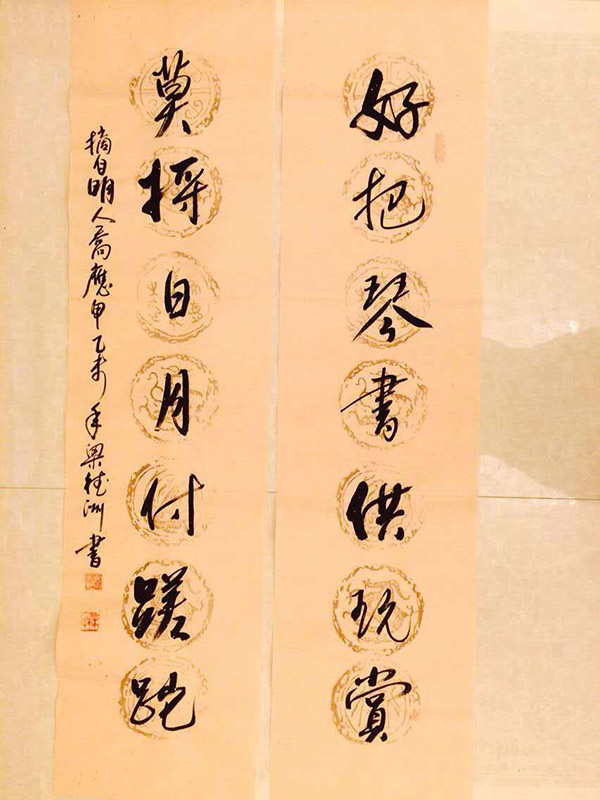 好把琴書供玩賞
莫将日月付蹉跎
摘自明人喬應甲乙未年梁德洲書